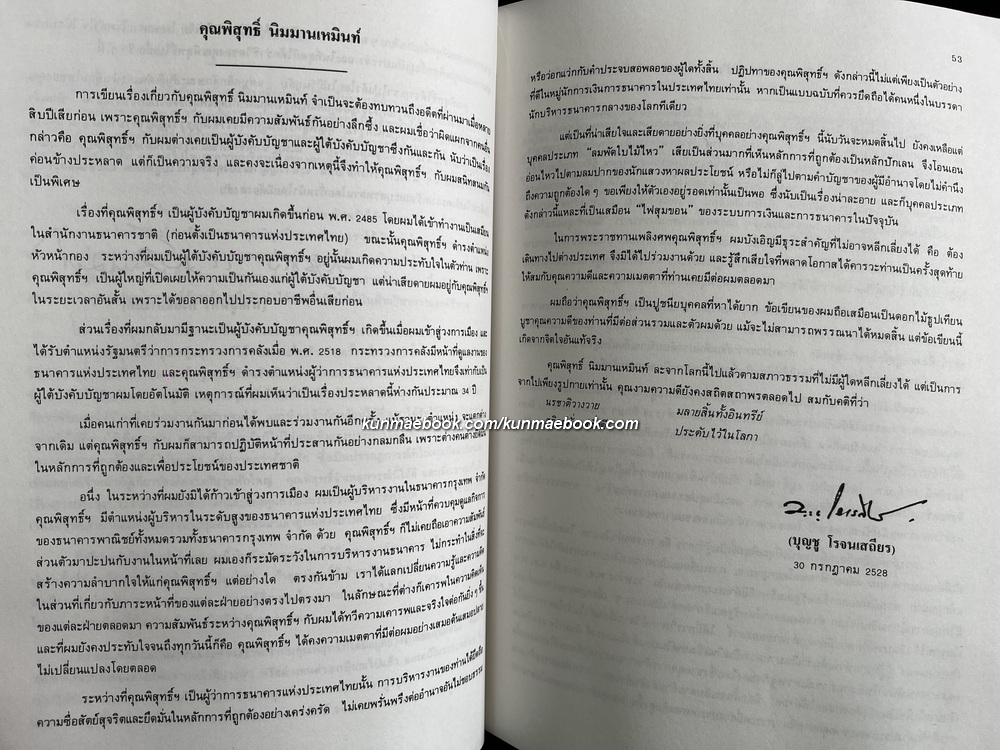 คุณพิสุทธิ์ นิมมานเหมินท์
การเขียนเรื่องเกี่ยวกับคุณพิสุทธิ์ นิมมานเหมินท์ จำเป็นจะต้องทบทวนถึงอดีตที่ผ่านมาเมื่อหลาย
สิบปีเสียก่อน เพราะคุณพิสุทธิ์ฯ กับผมเคยมีความสัมพันธ์กันอย่างลึกซึ้ง และผมเชื่อว่าผิดแผกจากคนอื่น
กล่าวคือ คุณพิสุทธิ์ฯ กับผมต่างเคยเป็นผู้บังคับบัญชาและผู้ใต้บังคับบัญชาซึ่งกันและกัน นับว่าเป็นเรื่อง
ค่อนข้างประหลาด แต่ก็เป็นความจริง และคงจะเนื่องจากเหตุนี้จึงทำให้คุณพิสุทธิ์ฯ กับผมสนิทสนมกัน
เป็นพิเศษ
เรื่องที่คุณพิสุทธิ์ฯ เป็นผู้บังคับบัญชาผมเกิดขึ้นก่อน พ.ศ. 2485 โดยผมได้เข้าทำงานเป็นเสมียน
ในสำนักงานธนาคารชาติ (ก่อนตั้งเป็นธนาคารแห่งประเทศไทย) ขณะนั้นคุณพิสุทธิ์ฯ ดำรงตำแหน่ง
หัวหน้ากอง ระหว่างที่ผมเป็นผู้ใต้บังคับบัญชาคุณพิสุทธิ์ฯ อยู่นั้นผมเกิดความประทับใจในตัวท่าน เพราะ
คุณพิสุทธิ์ฯ เป็นผู้ใหญ่ที่เปิดเผยให้ความเป็นกันเองแก่ผู้ใต้บังคับบัญชา แต่น่าเสียดายผมอยู่กับคุณพิสุทธิ์ฯ
ในระยะเวลาอันสั้น เพราะได้ขอลาออกไปประกอบอาชีพอื่นเสียก่อน
ส่วนเรื่องที่ผมกลับมามีฐานะเป็นผู้บังคับบัญชาคุณพิสุทธิ์ฯ เกิดขึ้นเมื่อผมเข้าสู่วงการเมือง และ
ได้รับตำแหน่งรัฐมนตรีว่าการกระทรวงการคลังเมื่อ พ.ศ. 2518 กระทรวงการคลังมีหน้าที่ดูแลงานของ
ธนาคารแห่งประเทศไทย และคุณพิสุทธิ์ฯ ดำรงตำแหน่งผู้ว่าการธนาคารแห่งประเทศไทยจึงเท่ากับเป็น
ผู้ใต้บังคับบัญชาผมโดยอัตโนมัติ เหตุการณ์ที่ผมเห็นว่าเป็นเรื่องประหลาดนี้ห่างกันประมาณ 34 ปี
เมื่อคนเก่าที่เคยร่วมงานกันมาก่อนได้พบและร่วมงานกันอีกครั้ง แม้ฐานะตำแหน่ง จะแตกต่าง
จากเดิม แต่คุณพิสุทธิ์ฯ กับผมก็สามารถปฏิบัติหน้าที่ประสานกันอย่างกลมกลืน เพราะต่างคนต่างยึดมั่น
ในหลักการที่ถูกต้องและเพื่อประโยชน์ของประเทศชาติ
อนึ่ง ในระหว่างที่ผมยังมิได้ก้าวเข้าสู่วงการเมือง ผมเป็นผู้บริหารงานในธนาคารกรุงเทพ จำกัด
คุณพิสุทธิ์ฯ มีตำแหน่งผู้บริหารในระดับสูงของธนาคารแห่งประเทศไทย ซึ่งมีหน้าที่ควบคุมดูแลกิจการ
ของธนาคารพาณิชย์ทั้งหมดรวมทั้งธนาคารกรุงเทพ จำกัด ด้วย คุณพิสุทธิ์ฯ ก็ไม่เคยถือเอาความสัมพันธ์
ส่วนตัวมาปะปนกับงานในหน้าที่เลย ผมเองก็ระมัดระวังในการบริหารงานธนาคาร ไม่กระทำในสิ่งที่จะ
สร้างความลำบากใจให้แก่คุณพิสุทธิ์ฯ แต่อย่างใด ตรงกันข้าม เราได้แลกเปลี่ยนความรู้และความคิด
ในส่วนที่เกี่ยวกับภาระหน้าที่ของแต่ละฝ่ายอย่างตรงไปตรงมา ในลักษณะที่ต่างก็เคารพในความคิดเห็น
ของแต่ละฝ่ายตลอดมา ความสัมพันธ์ระหว่างคุณพิสุทธิ์ฯ กับผมได้ทวีความเคารพและจริงใจต่อกันยิ่ง ๆ ขึ้น
และที่ผมยังคงประทับใจจนถึงทุกวันนี้ก็คือ คุณพิสุทธิ์ฯ ได้คงความเมตตาที่มีต่อผมอย่างเสมอต้นเสมอปลาย
ไม่เปลี่ยนแปลงโดยตลอด
ระหว่างที่คุณพิสุทธิ์ฯ เป็นผู้ว่าการธนาคารแห่งประเทศไทยนั้น การบริหารงานของท่านได้ยึดถือ
ความซื่อสัตย์สุจริตและยึดมั่นในหลักการที่ถูกต้องอย่างเคร่งครัด ไม่เคยพรั่นพรึงต่ออำนาจอันไม่ชอบธรรม
53
หรือว่อกแว่กกับคำประจบสอพลอของผู้ใดทั้งสิ้น ปฏิปทาของคุณพิสุทธิ์ฯ ดังกล่าวนี้ไม่แต่เพียงเป็นตัวอย่าง
ที่ดีในหมู่นักการเงินการธนาคารในประเทศไทยเท่านั้น หากเป็นแบบฉบับที่ควรยึดถือได้คนหนึ่งในบรรดา
นักบริหารธนาคารกลางของโลกทีเดียว
แต่เป็นที่น่าเสียใจและเสียดายอย่างยิ่งที่บุคคลอย่างคุณพิสุทธิ์ฯ นี้นับวันจะหมดสิ้นไป ยังคงเหลือแต่
บุคคลประเภท "ลมพัดใบไม้ไหว" เสียเป็นส่วนมากที่เห็นหลักการที่ถูกต้องเป็นหลักปักเลน จึงโอนเอน
อ่อนไหวไปตามลมปากของนักแสวงหาผลประโยชน์ หรือไม่ก็ลู่ไปตามคำบัญชาของผู้มีอำนาจโดยไม่คำนึง
ถึงความถูกต้องใด ๆ ขอเพียงให้ตัวเองอยู่รอดเท่านั้นเป็นพอ ซึ่งนับเป็นเรื่องน่าละอาย และก็บุคคลประเภท
ดังกล่าวนี้แหละที่เป็นเสมือน "ไฟสุมขอน" ของระบบการเงินและการธนาคารในปัจจุบัน
ในการพระราชทานเพลิงศพคุณพิสุทธิ์ฯ ผมบังเอิญมีธุระสำคัญที่ไม่อาจหลีกเลี่ยงได้ คือ ต้อง
เดินทางไปต่างประเทศ จึงมิได้ไปร่วมงานด้วย และรู้สึกเสียใจที่พลาดโอกาสได้คารวะท่านเป็นครั้งสุดท้าย
ให้สมกับคุณความดีและความเมตตาที่ท่านเคยมีต่อผมตลอดมา
ผมถือว่าคุณพิสุทธิ์ฯ เป็นปูชนียบุคคลที่หาได้ยาก ข้อเขียนของผมถือเสมือนเป็นดอกไม้ธูปเทียน
บูชาคุณความดีของท่านที่มีต่อส่วนรวมและตัวผมด้วย แม้จะไม่สามารถพรรณนาได้หมดสิ้น แต่ข้อเขียนนี้
เกิดจากจิตใจอันแท้จริง
คุณพิสุทธิ์ นิมมานเหมินท์ ละจากโลกนี้ไปแล้วตามสภาวธรรมที่ไม่มีผู้ใดหลีกเลี่ยงได้ แต่เป็นการ
จากไปเพียงรูปกายเท่านั้น คุณงามความดียังคงสถิตสถาพรตลอดไป สมกับคติที่ว่า
นรชาติวางวาย มลายสิ้นทั้งอินทรีย์
ประดับไว้ในโลกา
www.kunmaebook.com/kunmaebook.com
(บุญชู โรจนเสถียร)
30 กรกฎาคม 2528